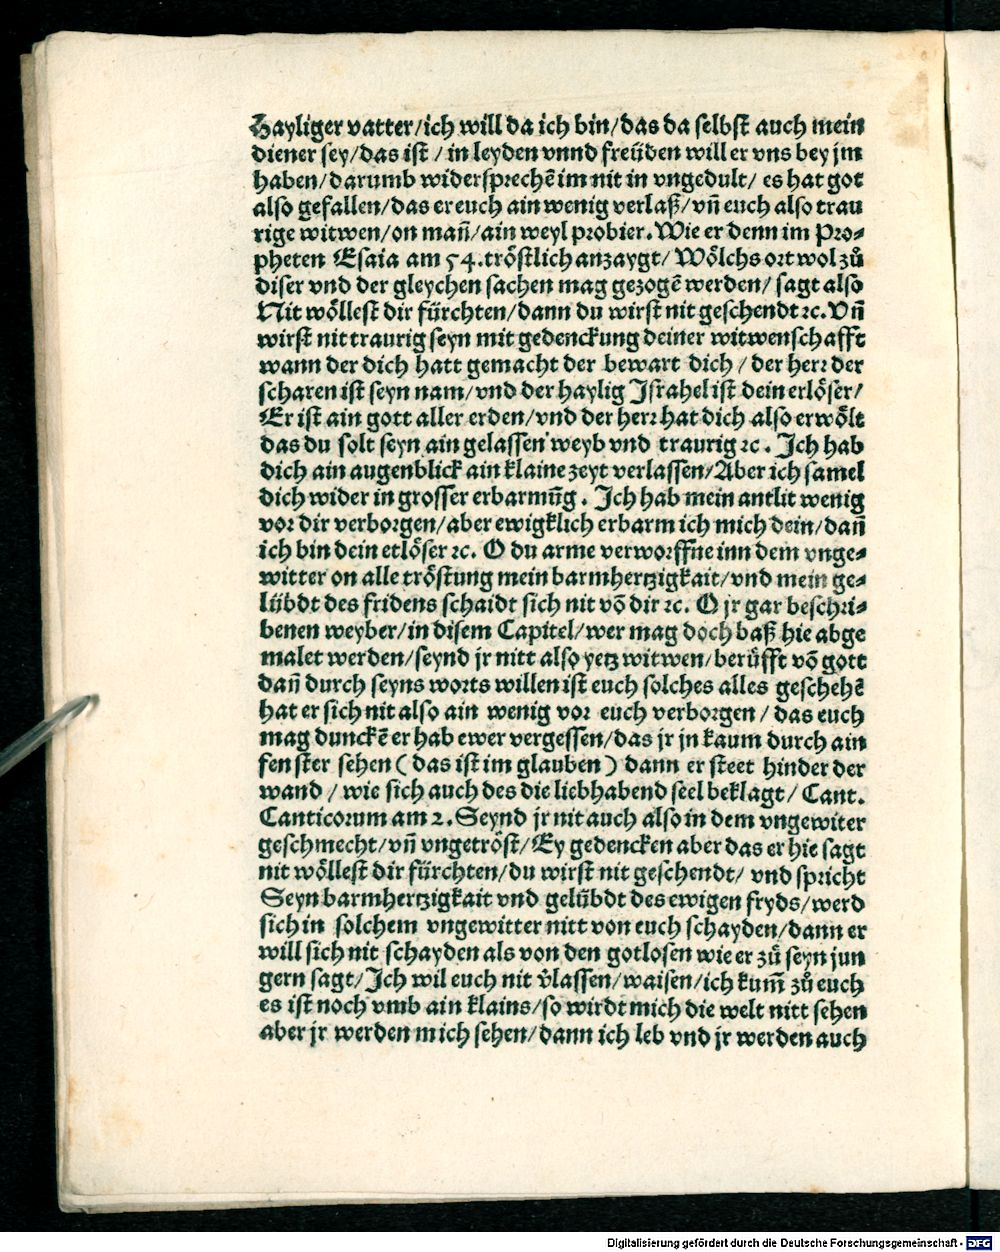 Hayliger vatter/ich will da ich bin/das da selbst auch mein
diener sey/das ist / in leyden vnnd freüden will er vns bey jm
haben/darumb widersprechẽ im nit in vngedult/ es hat got
also gefallen/das er euch ain wenig verlaß/vñ euch also trau
rige witwen/on mañ/ain weyl probier. Wie er denn im Pro⸗
pheten Esaia am 54. tröstlich anzaygt/ Wölchs ort wol zů
diser vnd der gleychen sachen mag gezogẽ werden/ sagt also
Nit wöllest dir fürchten/dann du wirst nit geschendt ꝛc. Vñ
wirst nit traurig seyn mit gedenckung deiner witwenschafft
wann der dich hatt gemacht der bewart dich / der herr der
scharen ist seyn nam/vnd der haylig Israhel ist dein erlöser/
Er ist ain gott aller erden/vnd der herr hat dich also erwölt
das du solt seyn ain gelassen weyb vnd traurig ꝛc. Ich hab
dich ain augenblick ain klaine zeyt verlassen/Aber ich samel
dich wider in grosser erbarmũg. Ich hab mein antlit wenig
vor dir verborgen/aber ewigklich erbarm ich mich dein/dañ
ich bin dein etlöser ꝛc. O du arme verworffne inn dem vnge⸗
witter on alle tröstung mein barmhertzigkait/vnd mein ge⸗
lübdt des fridens schaidt sich nit võ dir ꝛc. O jr gar beschri⸗
benen weyber/in disem Capitel/wer mag doch baß hie abge
malet werden/seynd jr nitt also yetz witwen/berüfft võ gott
dañ durch seyns worts willen ist euch solches alles geschehẽ
hat er sich nit also ain wenig vor euch verborgen / das euch
mag dunckẽ er hab ewer vergessen/das jr jn kaum durch ain
fenster sehen ( das ist im glauben ) dann er steet hinder der
wand / wie sich auch des die liebhabend seel beklagt/ Cant.
Canticorum am 2. Seynd jr nit auch also in dem vngewiter
geschmecht/vñ vngetröst/Ey gedencken aber das er hie sagt
nit wöllest dir fürchten/du wirst nit geschendt/ vnd spricht
Seyn barmhertzigkait vnd gelübdt des ewigen fryds/werd
sich in solchem vngewitter nitt von euch schayden/dann er
will sich nit schayden als von den gotlosen wie er zů seyn jun
gern sagt/Ich wil euch nit v̈lassen/waisen/ich kum̃ zů euch
es ist noch vmb ain klains/so wirdt mich die welt nitt sehen
aber jr werden mich sehen/dann ich leb vnd jr werden auch
Digitalisierung gefördert durch die Deutsche Forschungsgemeinschaft - DFG